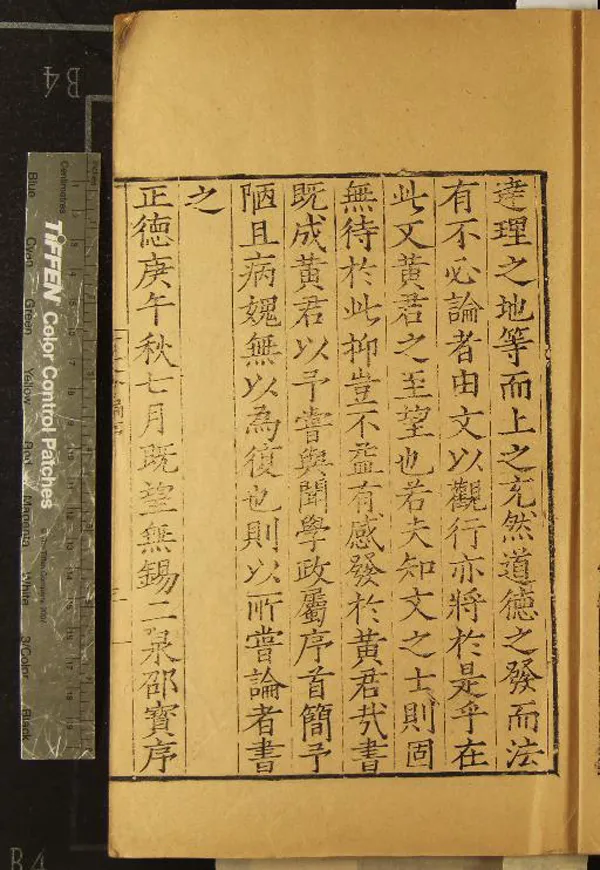 達理之地等而上之充然道德之發而法
有不必論者由文以觀行亦將於是乎在
此文黃君之至望也若夫知文之士則固
無待於此抑豈不益有感發於黃君哉書
既成黃君以予嘗與聞學政屬序首簡予
陋且病媿無以為復也則以所嘗論者書
之
正德庚午秋七月既望無錫二泉邵寶序
B4
Inches
Centimetres
TIFFEN Color Control Patches
© The Tiffen Company, 2007
Blue
Cyan
Green
Yellow
Red
Magenta
White
3/Color
Black
B4